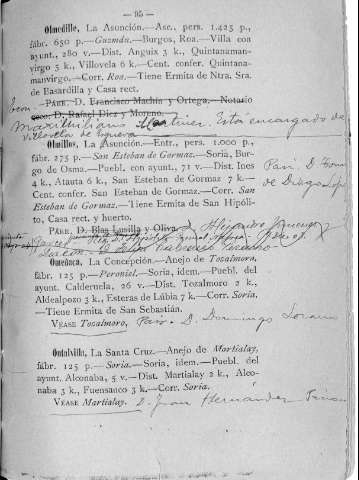 — 95 —
Olmedillo, La Asunción.—Asc., pers. 1.425 p.,
fábr. 650 p.—Guzmán.—Burgos, Roa.—Villa con
ayunt., 280 v.—Dist. Anguix 3 k., Quintanaman-
virgo 5 k., Villovela 6 k.—Cent. confer. Quintana-
manvirgo.—Corr. Roa.—Tiene Ermita de Ntra. Sra.
de Basardilla y Casa rect.
Párr. D. Francisco Machín y Ortega.—Notario
D. Rafael Díez y Moreno.—
Maximiliano Martínez. Está encargado de
Villovela de Esgueva
Olmillos, La Asunción.—Entr., pers. 1.000 p.,
fábr. 275 p.—San Esteban de Gormaz.—Soria, Bur-
go de Osma.—Puebl. con ayunt., 71 v.—Dist. Ines
4 k., Atauta 6 k., San Esteban de Gormaz 7 k.—
Cent. confer. San Esteban de Gormaz.—Corr. San
Esteban de Gormaz.—Tiene Ermita de San Hipóli-
to, Casa rect. y huerto.
Párr. D. Blas Lasilla y Oliva.
Alejandro
Omeñaca, La Concepción.—Anejo de Tozalmoro,
fábr. 125 p.—Peroniel.—Soria, idem.—Puebl. del
ayunt. Calderuela, 26 v.—Dist. Tozalmoro 2 k.,
Aldealpozo 3 k., Esteras de Lúbia 7 k.—Corr. Soria.
—Tiene Ermita de San Sebastián.
Véase Tozalmoro, Párr. D. Domingo
Ontalvilla, La Santa Cruz.—Anejo de Martialay,
fábr. 125 p.—Soria.—Soria, idem.—Puebl. del
ayunt. Alconaba, 5 v.—Dist. Martialay 2 k., Alco-
naba 3 k., Fuensauco 3 k.—Corr. Soria.
Véase Martialay. D. Juan Hernández